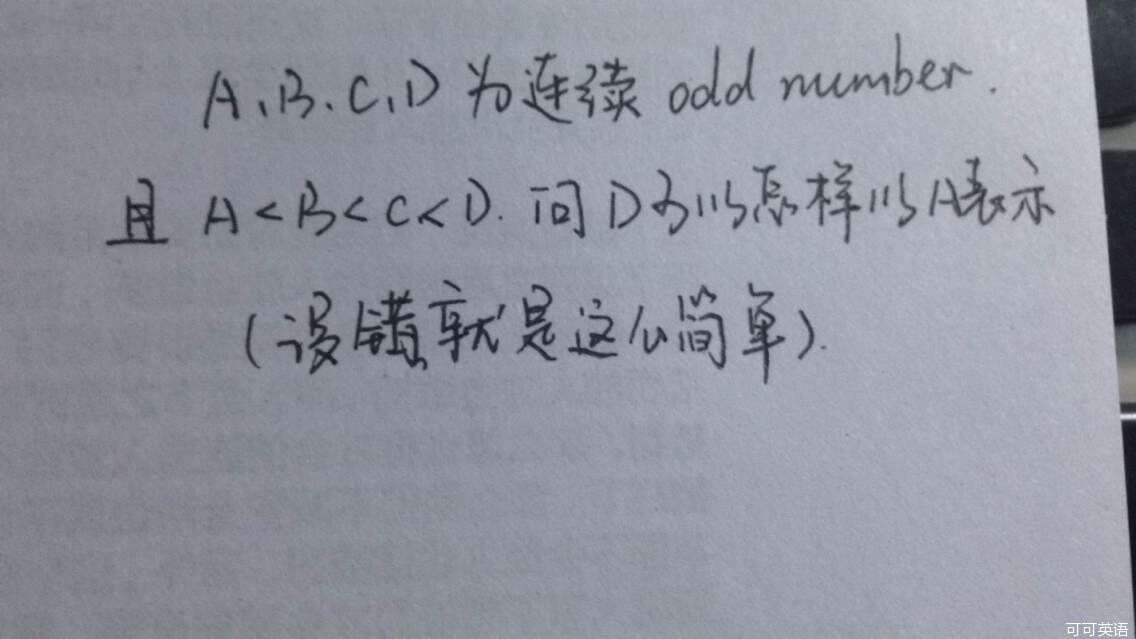 A、B、C、D 为连续 odd number.
且 A<B<C<D. 问 D 可以怎样以A表示
(没错就是这么简单).
可可英语